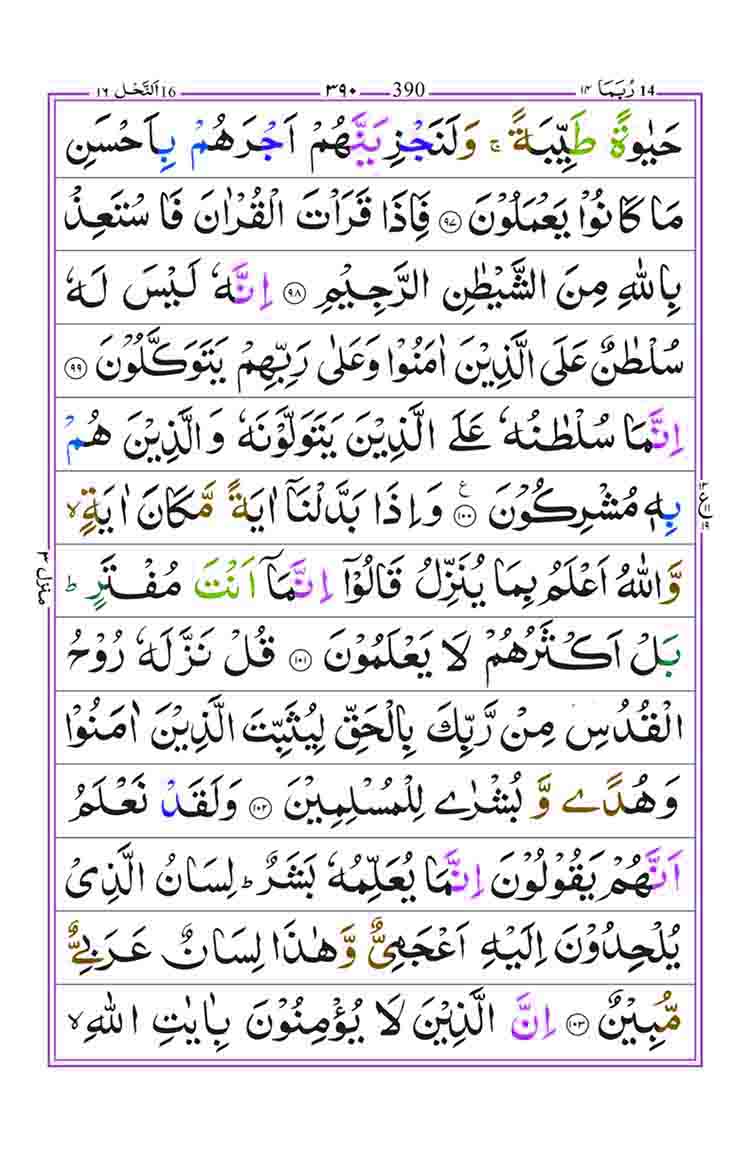 14 رُبَمَا ١٤ 390 ٣٩٠ 16 اَلنَّحْل ١٦
حَيٰوةً طَيِّبَةً ۚ وَلَنَجْزِيَنَّهُمْ اَجْرَهُمْ بِاَحْسَنِ
مَا كَانُوْا يَعْمَلُوْنَ ۝٩٧ فَاِذَا قَرَاْتَ الْقُرْاٰنَ فَاسْتَعِذْ
بِاللّٰهِ مِنَ الشَّيْطٰنِ الرَّجِيْمِ ۝٩٨ اِنَّهٗ لَيْسَ لَهٗ
سُلْطٰنٌ عَلَى الَّذِيْنَ اٰمَنُوْا وَعَلٰى رَبِّهِمْ يَتَوَكَّلُوْنَ ۝٩٩
اِنَّمَا سُلْطٰنُهٗ عَلَى الَّذِيْنَ يَتَوَلَّوْنَهٗ وَالَّذِيْنَ هُمْ
بِهٖ مُشْرِكُوْنَ ۝١٠٠ ع وَاِذَا بَدَّلْنَاۤ اٰيَةً مَّكَانَ اٰيَةٍ ۙ
وَّاللّٰهُ اَعْلَمُ بِمَا يُنَزِّلُ قَالُوْۤا اِنَّمَاۤ اَنْتَ مُفْتَرٍ ؕ
بَلْ اَكْثَرُهُمْ لَا يَعْلَمُوْنَ ۝١٠١ قُلْ نَزَّلَهٗ رُوْحُ
الْقُدُسِ مِنْ رَّبِّكَ بِالْحَقِّ لِيُثَبِّتَ الَّذِيْنَ اٰمَنُوْا
وَهُدًى وَّ بُشْرٰى لِلْمُسْلِمِيْنَ ۝١٠٢ وَلَقَدْ نَعْلَمُ
اَنَّهُمْ يَقُوْلُوْنَ اِنَّمَا يُعَلِّمُهٗ بَشَرٌ ؕ لِسَانُ الَّذِىْ
يُلْحِدُوْنَ اِلَيْهِ اَعْجَمِىٌّ وَّهٰذَا لِسَانٌ عَرَبِىٌّ
مُّبِيْنٌ ۝١٠٣ اِنَّ الَّذِيْنَ لَا يُؤْمِنُوْنَ بِاٰيٰتِ اللّٰهِ ۙ
منزل ٣